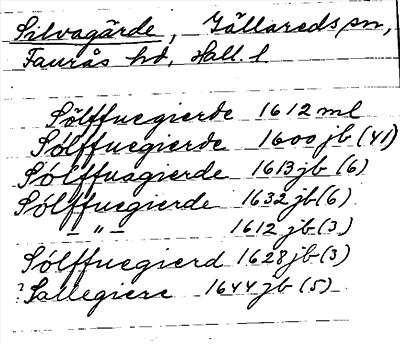 Silvagärde, Gällareds sn,
Faurås hd, Hall. l
Sölffuegierde 1612 ml
Sölffuegierde 1600 jb (41)
Sölffuagierde 1613 jb (6)
Sölffuegierde 1632 jb (6)
- " - 1612 jb (3)
Sölffuegierd 1628 jb (3)
? Sallegiere 1644 jb (5)